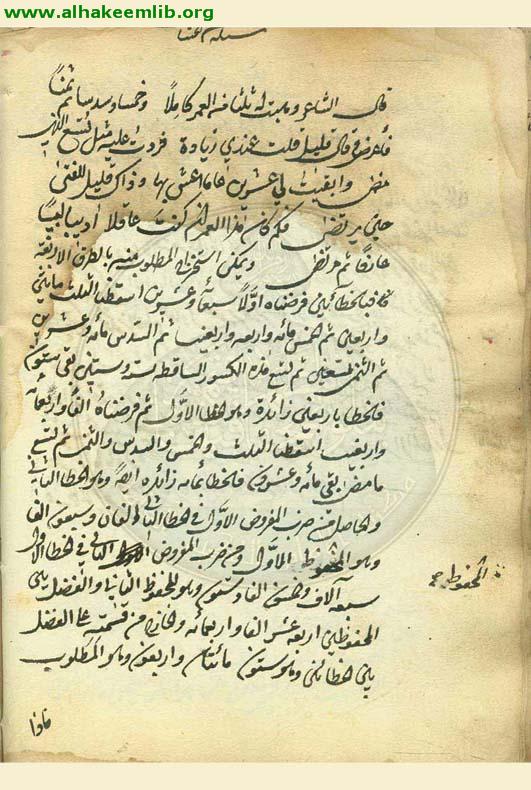 www.alhakeemlib.org
مسئلة
قال الشاعر وهبت له ثلثا من العمر كاملا وخمسا وسدسا ثم ثمنا
فأعرض وقال قليل قلت عندي زيادة فردت عليه مثل تسع الذي
مضى وابقيت لي عشرين عاما اعش بها وذاك قليل للفتى
حين يرتضى فكم كان هذا العمر ان كنت عاقلا أديبا لبيبا
عارفا ثم مرتضى ويمكن استخراج المطلوب منه بالطرق الاربعة
فبالخطائين فرضناه اولا سبعمائة وعشرين اسقطنا الثلث مائتين
واربعين ثم الخمس مائة واربعة واربعين ثم السدس مائة وعشرين
ثم الثمن تسعين ثم تسع هذه الكسور الساقطة ستة وستين بقي ستون
فالخطا باربعين زائدة وهو الخطا الاول ثم فرضناه الفا واربعمائة
واربعين اسقطنا الثلث والخمس والسدس والثمن ثم تسع
ما مضى بقي مائة وعشرون فالخطا بمائة زائدة ايضا وهو الخطا الثاني
والحاصل من ضرب المفروض الاول في الخطا الثاني اثنان وسبعون الفا
وهو المحفوظ الاول ومن ضرب المفروض الثاني في الخطا الاول
سبعة وخمسون الفا وستمائة وهو المحفوظ الثاني والفضل بين
المحفوظين اربعة عشر الفا واربعمائة والخارج من قسمته على الفضل
بين الخطائين وهو ستون مائتان واربعون وهو المطلوب
المحفوظ